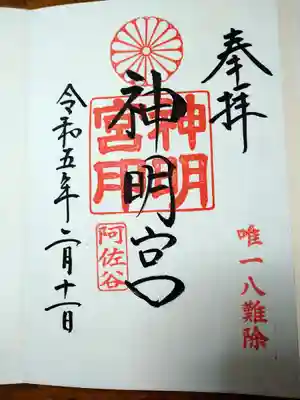 奉拝
唯一八難除
神明宮
神明宮
阿佐谷
令和五年二月十一日